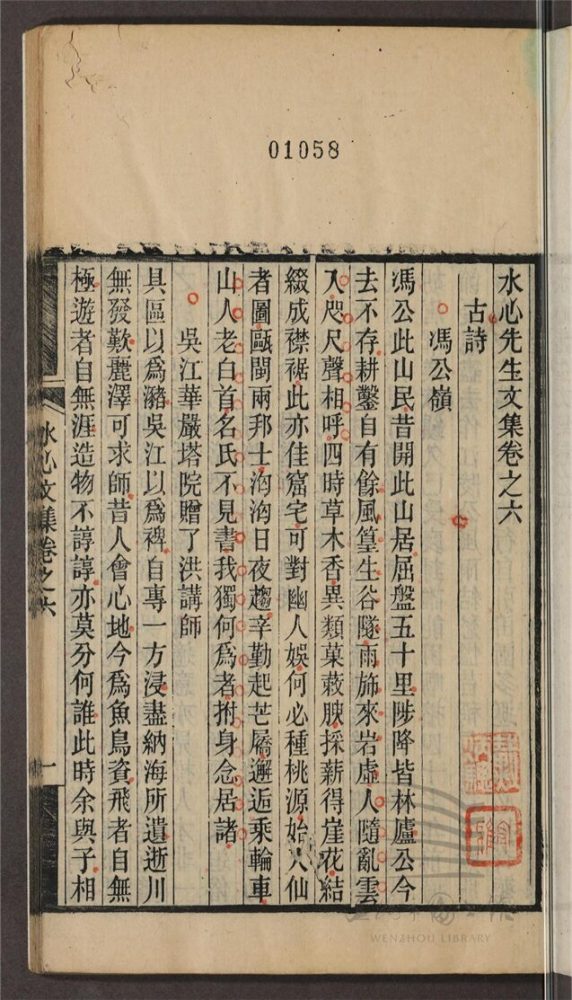 01058
水心先生文集卷之六
古詩
馮公嶺
馮公此山民昔開此山居屈盤五十里陟降皆林廬公今
去不存耕鑿自有餘風篁生谷隧雨斾來岩虛人隨亂雲
入咫尺聲相呼四時草木香異類菓蔌腴採薪得崖花結
綴成襟裾此亦佳窟宅可對幽人娛何必種桃源始入仙
者圖甌閩兩邦士洶洶日夜趨辛勤起芒屩邂逅乘輪車
山人老白首名氏不見書我獨何爲者拊身念居諸
吳江華嚴塔院贈了洪講師
具區以爲瀦吳江以爲裨自專一方浸盡納海所遺逝川
無發歎麗澤可求師昔人會心地今爲魚鳥資飛者自無
極遊者自無涯造物不諄諄亦莫分何誰此時余與子相
水心文集卷之六
一
WENZHOU LIBRARY